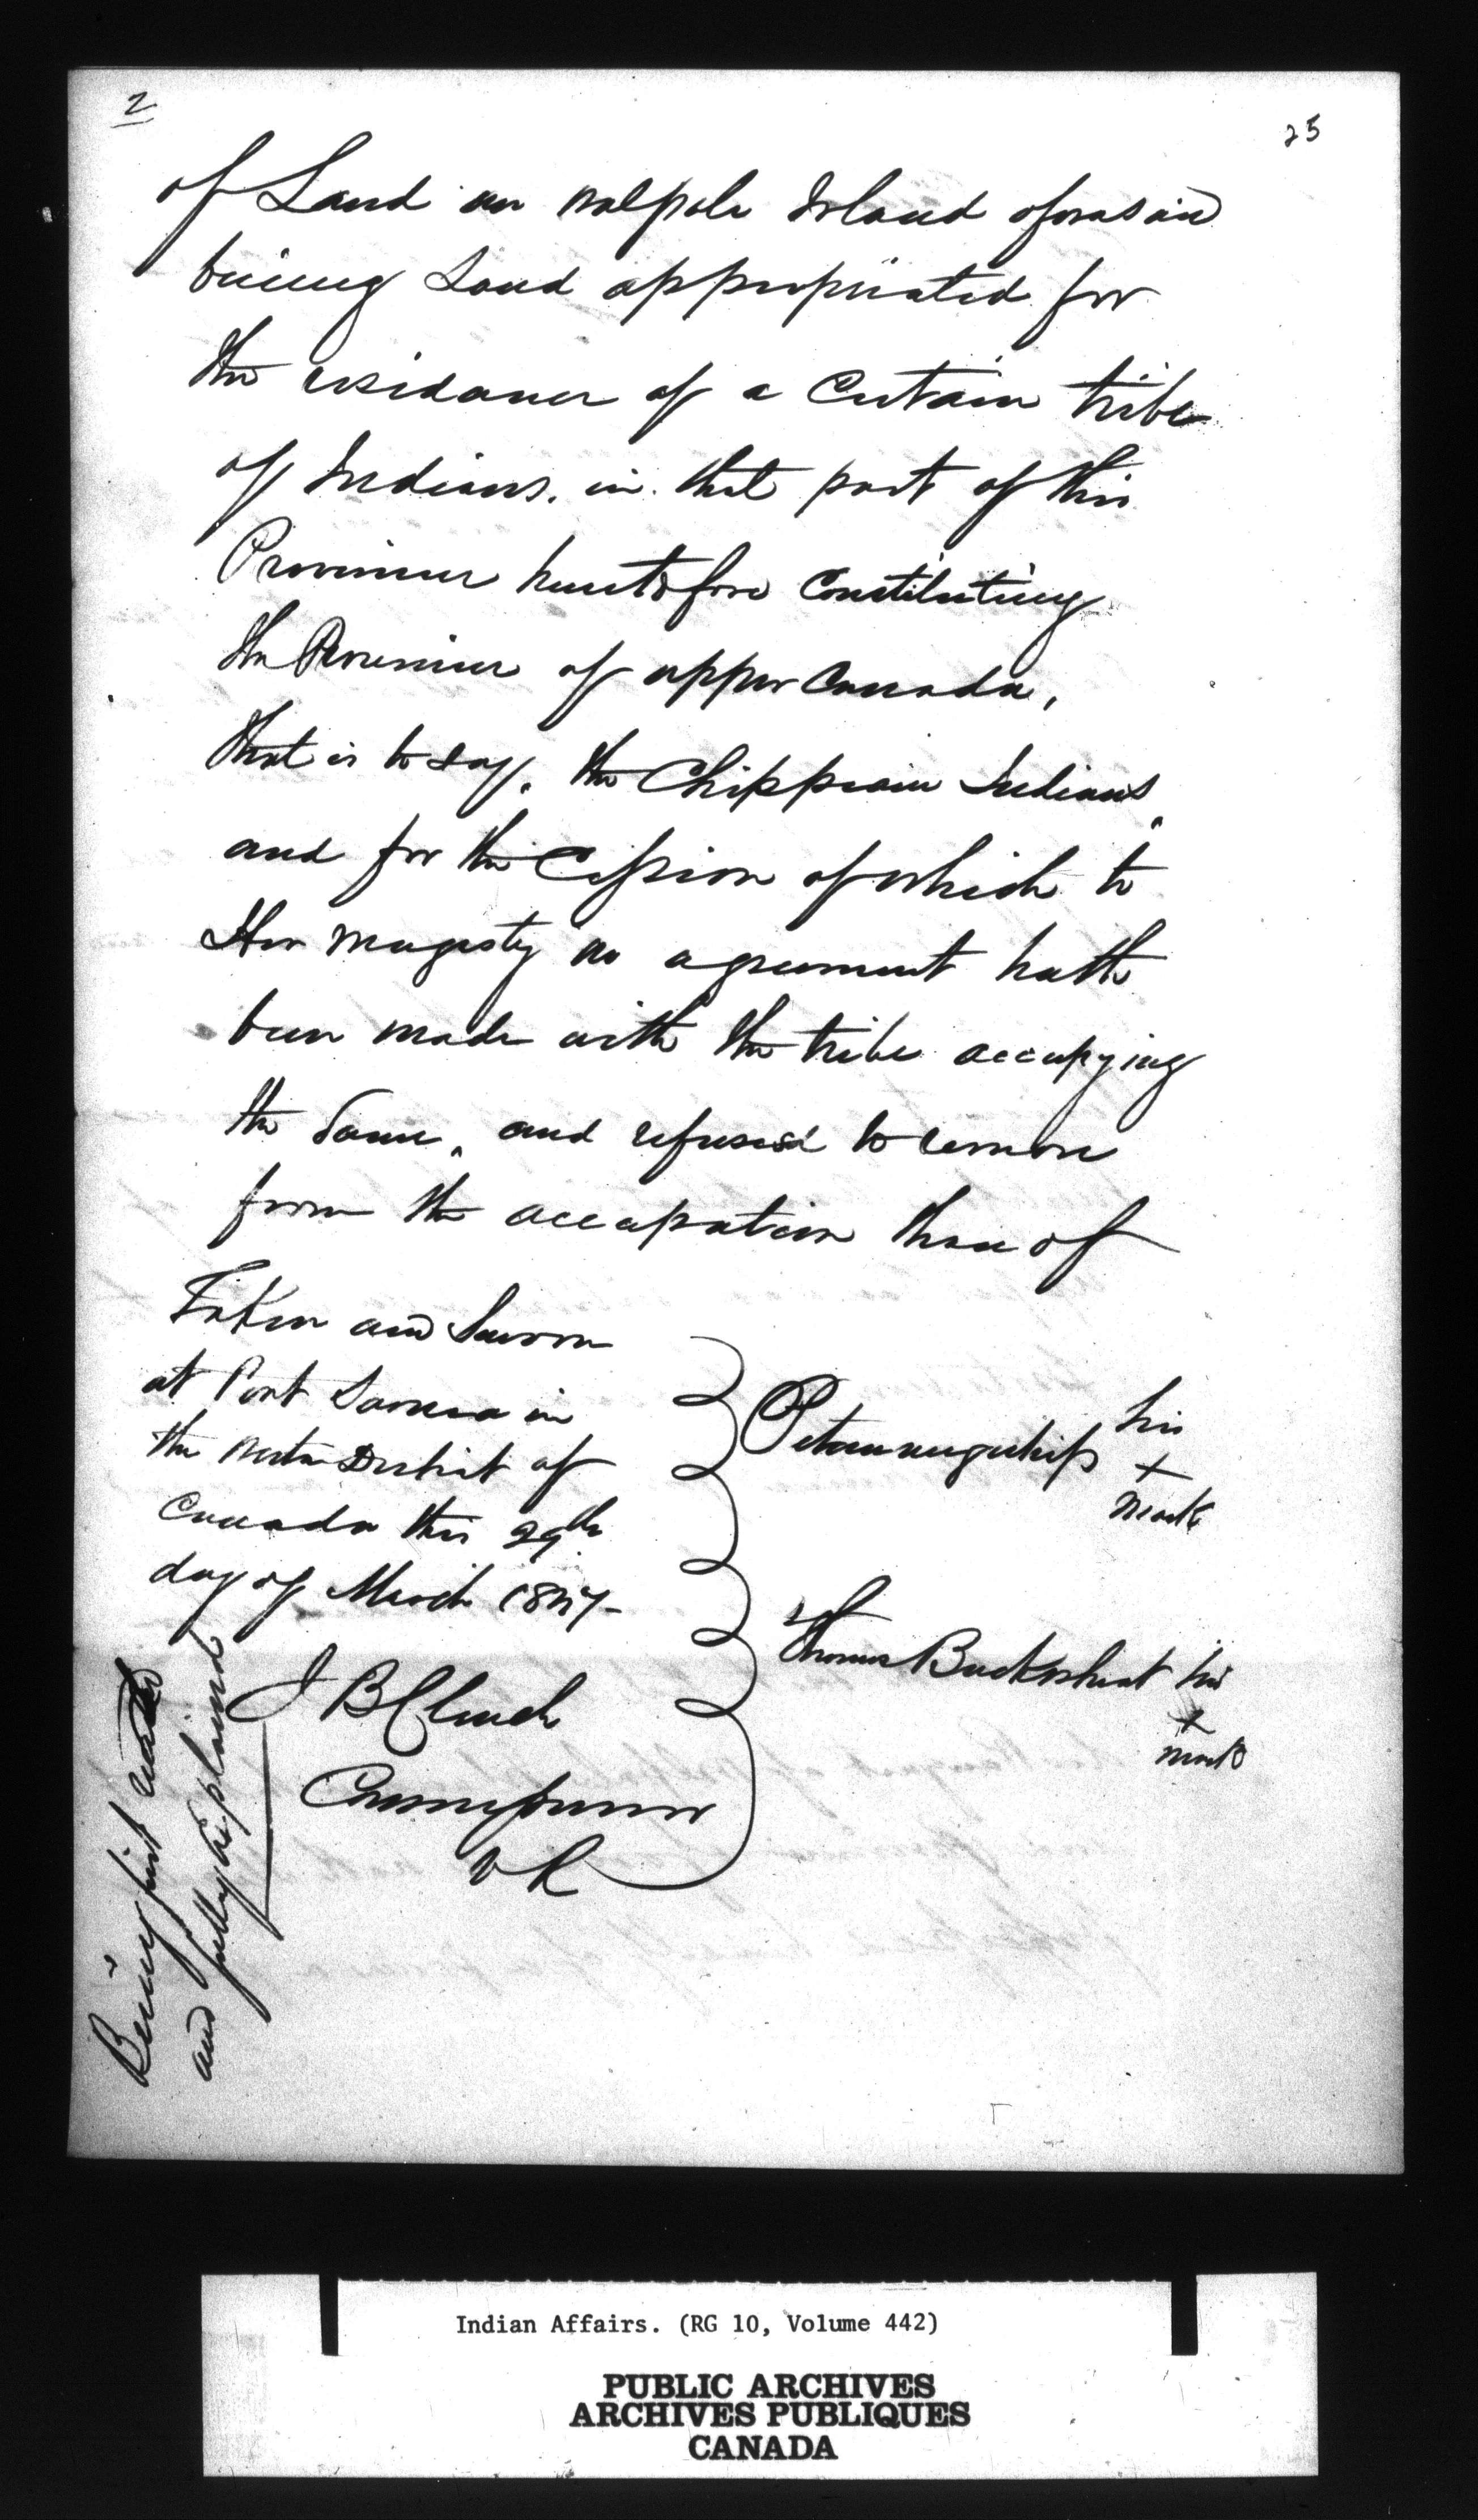 2
25
of Land on Walpole Island aforesaid
being Land appropriated for
the residance of a Certain tribe
of Indians. in that part of this
Province heretofore Constituting
the Province of upper Canada,
that is to say. the Chippewa Indians,
and for the Cession of which to
Her Magesty no agreement hath
been made with the tribe occupying
the Same, and refused to remove
from the occupation thereof
Taken and Sworn
at Port Sarnia in
the Western District of
Canada this 29th
day of March 1847
his
+
mark
Thomas Buckwheat his
+
mark
J B Clench
Commissioner
V R
Being first
and fully Explained
Indian Affairs. (RG 10, Volume 442)
PUBLIC ARCHIVES
ARCHIVES PUBLIQUES
CANADA